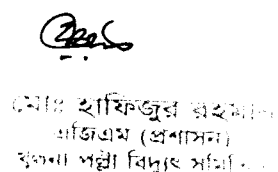 মোঃ হাফিজুর রহমান
এজিএম (প্রশাসন)
খুলনা পল্লী বিদ্যুৎ সমিতি